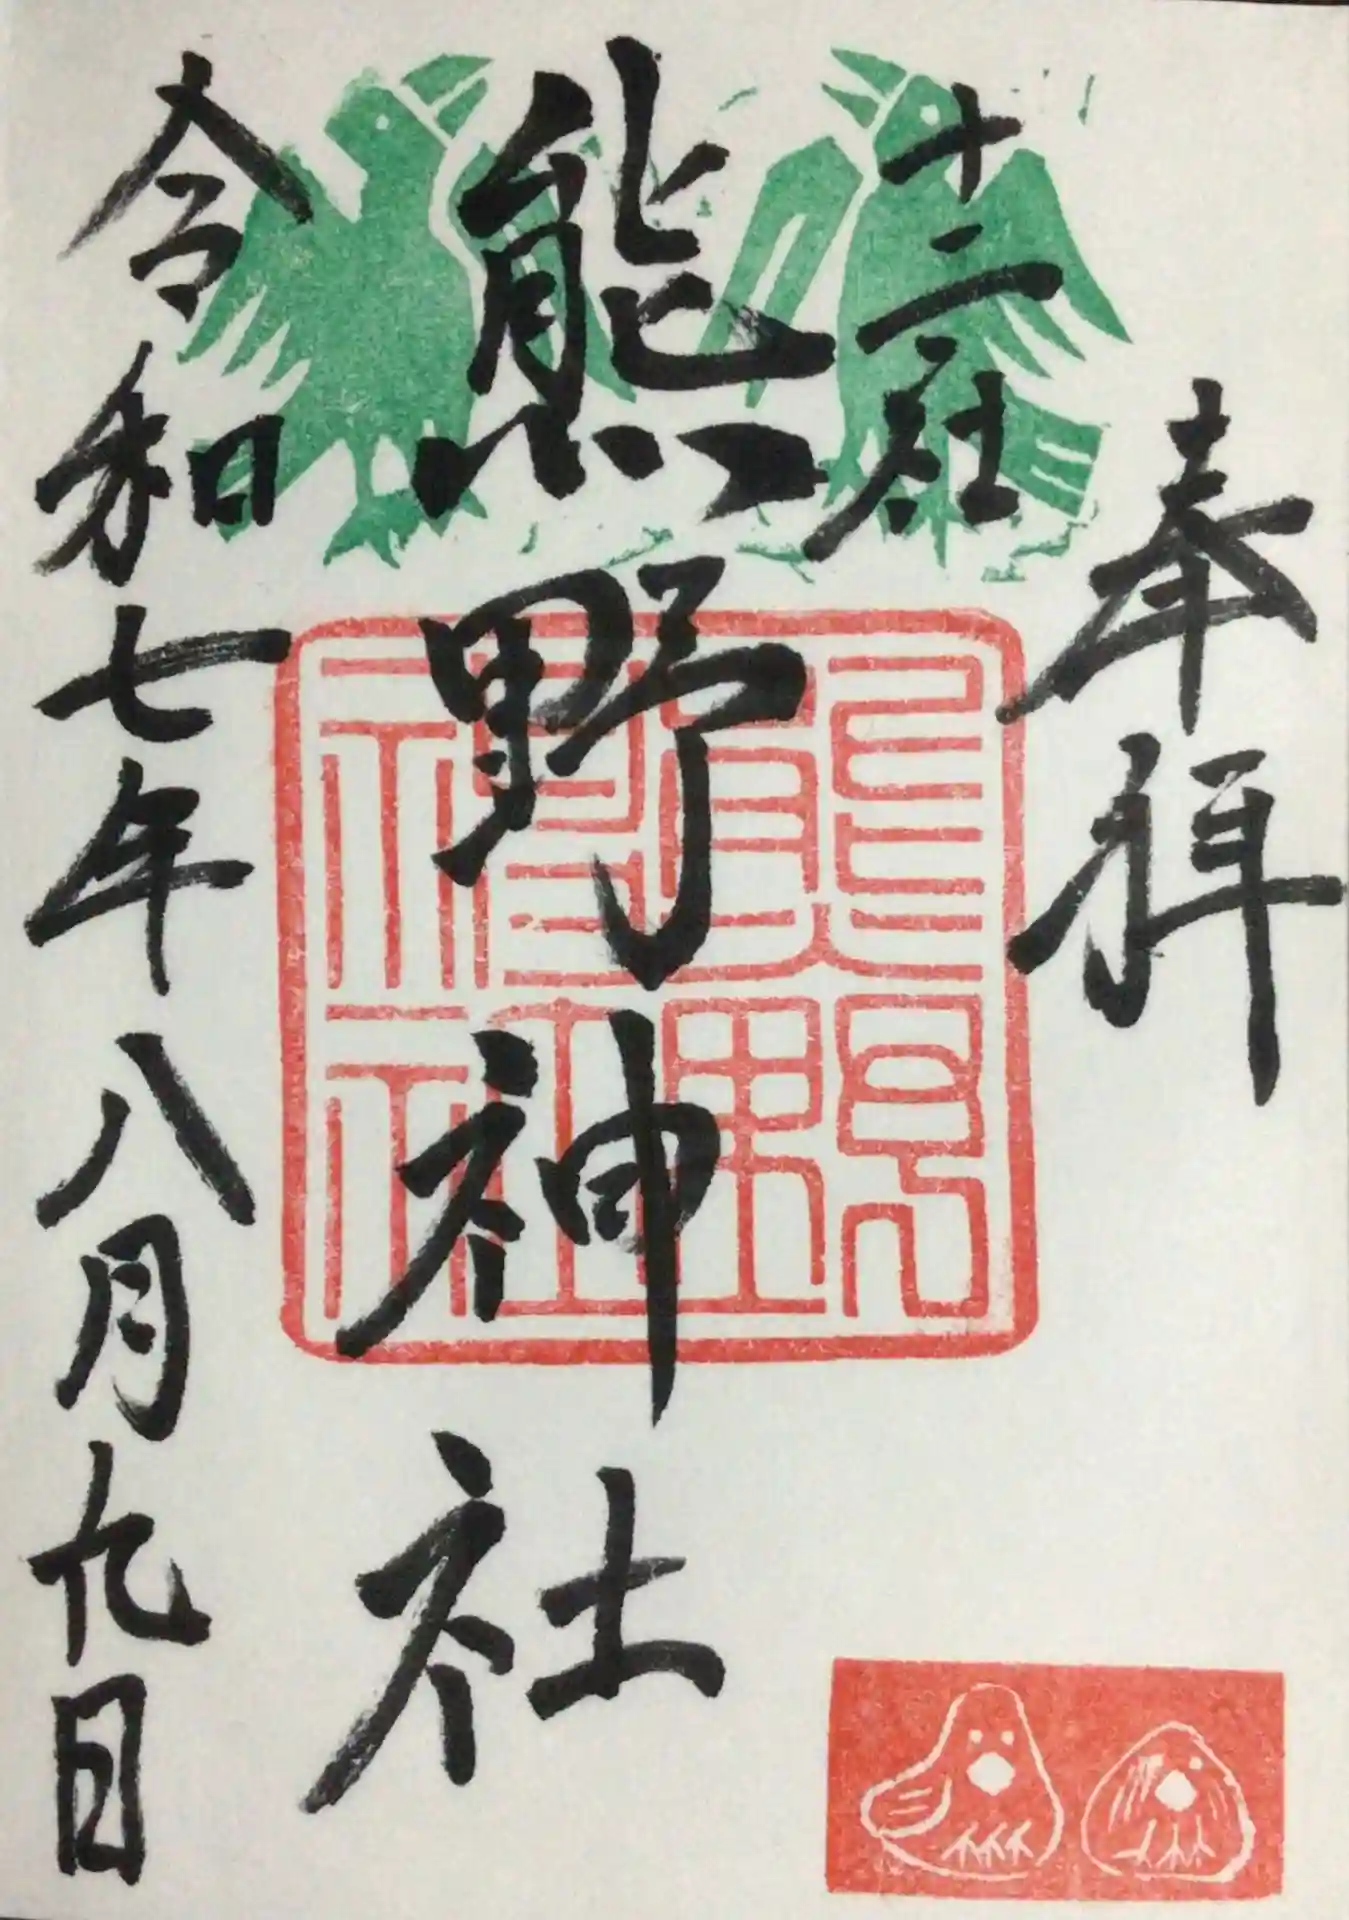 奉拝
十二社
熊野神社
熊野神社
令和七年八月九日